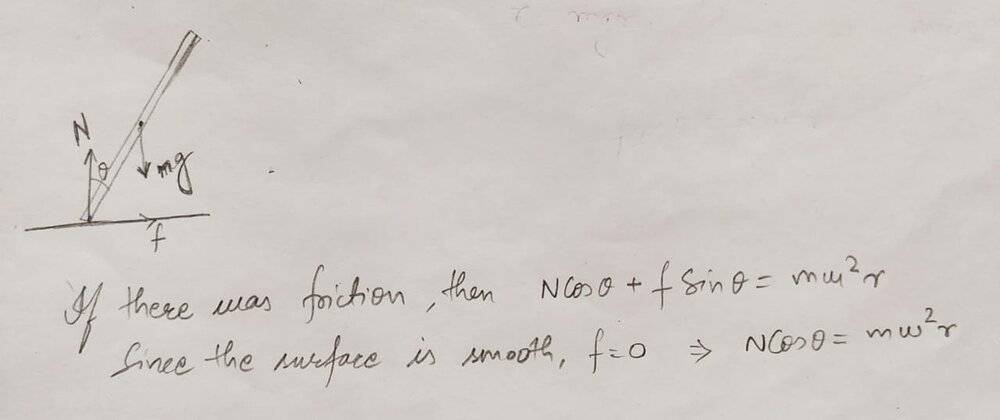 N
θ
mg
f
If there was friction, then Ncosθ + f Sinθ = mω²r
Since the surface is smooth, f=0 ⇒ NCosθ = mω²r